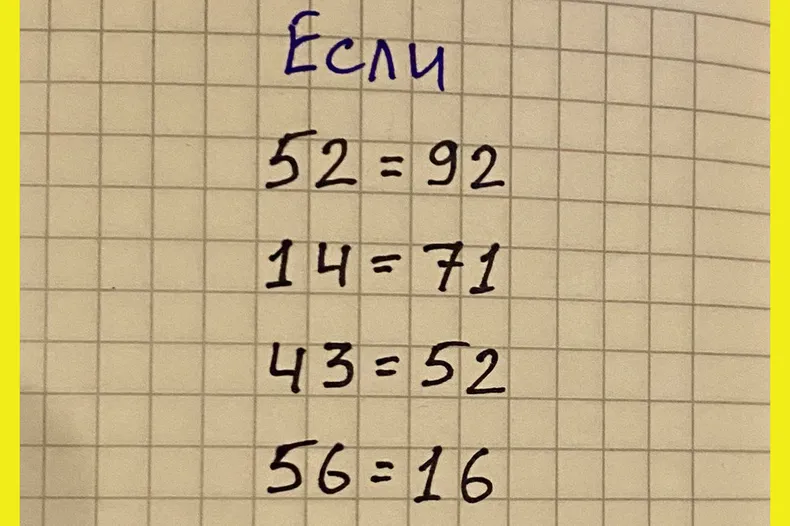 Если
52 = 92
14 = 71
43 = 52
56 = 16